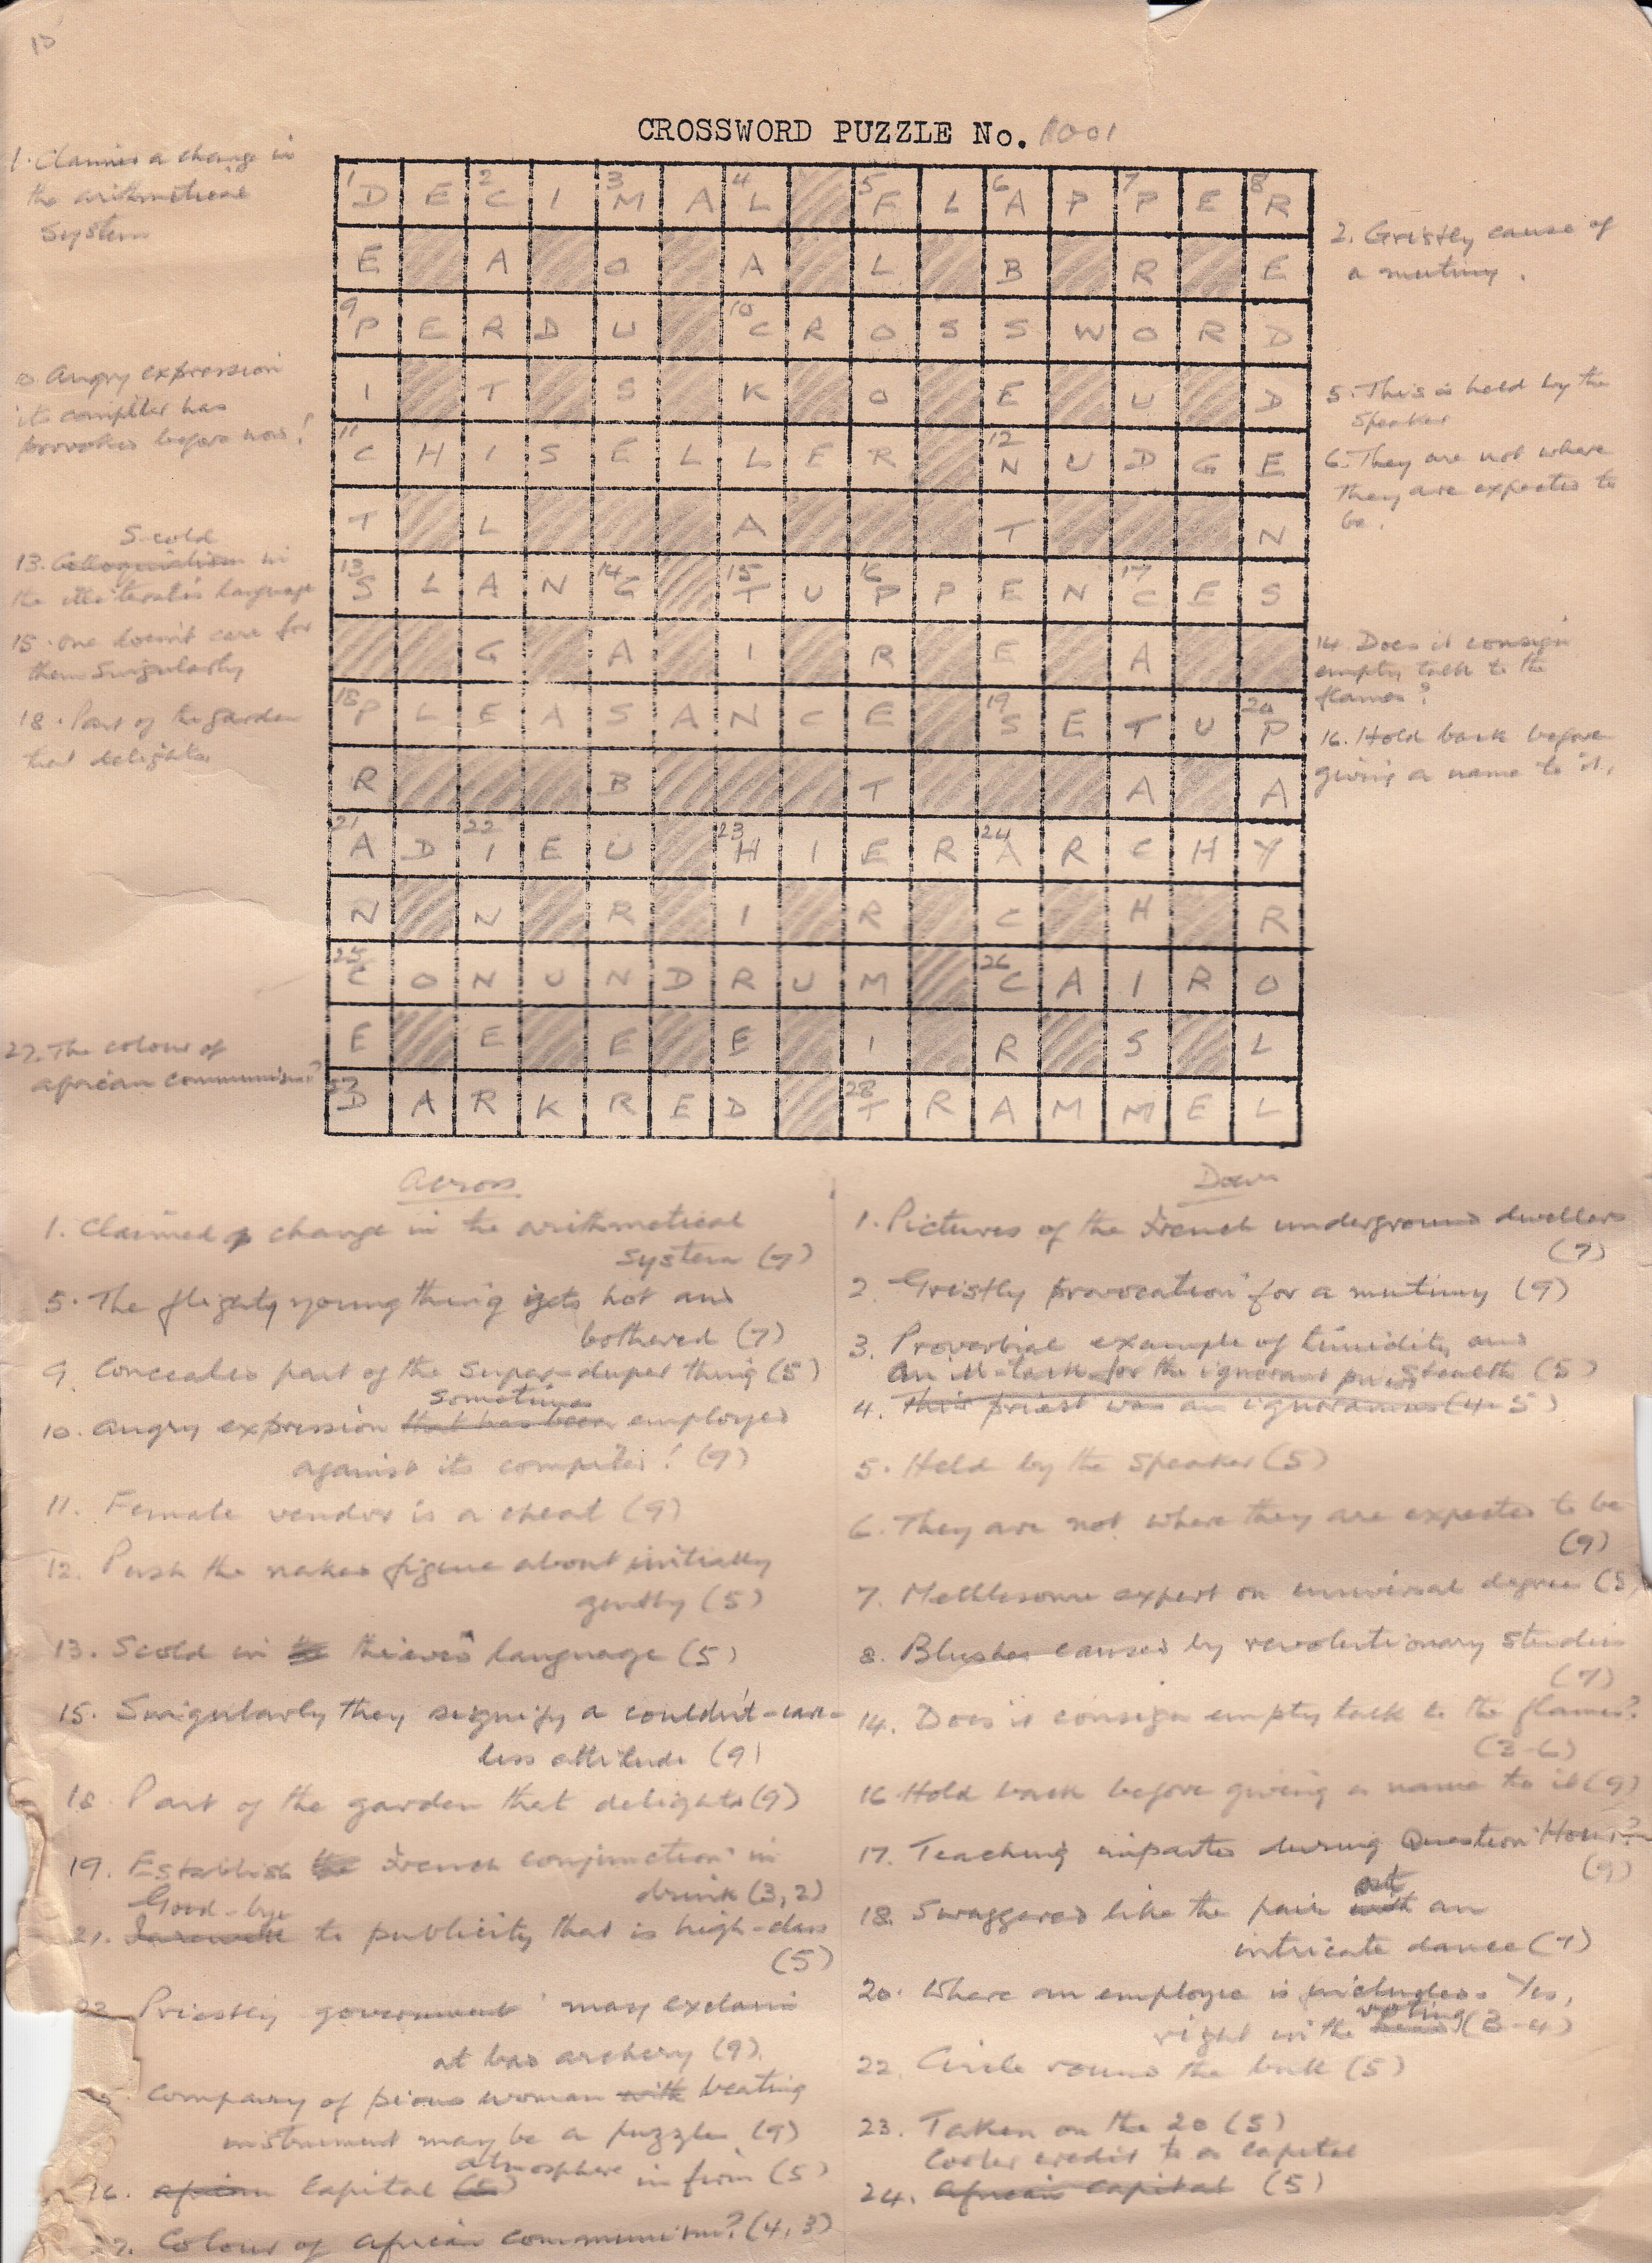 10
CROSSWORD PUZZLE No. 1001
1. Claimed a change in
the arithmetical
system
10. Angry expression
its compiler has
provoked before now!
Scold
13. Colloquialism in
the illiterate's language
15. One doesn't care for
them singularly
18. Part of the garden
that delights
27. The colour of
african communism?
1 D E 2 C I 3 M A 4 L 5 F L 6 A P 7 P E 8 R
E A O A L B R E
9 P E R D U 10 C R O S S W O R D
I T S K O E U D
11 C H I S E L L E R 12 N U D G E
T L A T N
13 S L A N 14 G 15 T U 16 P P E N 17 C E S
G A I R E A
18 P L E A S A N C E 19 S E T U 20 P
R B T A A
21 A D 22 I E U 23 H I E R 24 A R C H Y
N N R I R C H R
25 C O N U N D R U M 26 C A I R O
E E E E I R S L
27 D A R K R E D 28 T R A M M E L
2. Gristly cause of
a mutiny.
5. This is held by the
Speaker
6. They are not where
they are expected to
be.
14. Does it consign
empty talk to the
flames?
16. Hold back before
giving a name to it.
Across
1. Claimed a change in the arithmetical
system (7)
5. The flighty young thing gets hot and
bothered (7)
9. Concealed part of the super-duper thing (5)
sometimes
10. Angry expression that has been employed
against its compiler! (9)
11. Female vendor is a cheat (9)
12. Push the naked figure about initially
gently (5)
13. Scold in the thieves' language (5)
15. Singularly they signify a couldn't-care-
less attitude (9)
18. Part of the garden that delights (9)
19. Establish the French conjunction in
drink (3,2)
Good-bye
21. Farewell to publicity that is high-class
(5)
23. Priestly government may exclaim
at bad archery (9).
Company of pious woman with beating
instrument may be a puzzle (9)
atmosphere
26. African Capital (5) in firm (5)
27. Colour of African communism? (4,3)
Down
1. Pictures of the French underground dwellers
(7)
2. Gristly provocation for a mutiny (9)
3. Proverbial example of timidity and
stealth (5)
An ill-task for the ignorant priest
4. This priest was an ignoramus (4-5)
5. Held by the Speaker (5)
6. They are not where they are expected to be
(9)
7. Mettlesome expert on universal degree (5)
8. Blushes caused by revolutionary studies
(7)
14. Does it consign empty talk to the flames?
(3-6)
16 Hold back before giving a name to it (9)
17. Teaching imparted during Question Hour?
(9)
out
18. Swaggered like the pair with an
intricate dance (7)
20. Where an employee is included. Yes,
voting
right in the (3-4)
22. Circle round the bull (5)
23. Taken on the 20 (5)
Cooler credit to a capital
24. African Capital (5)